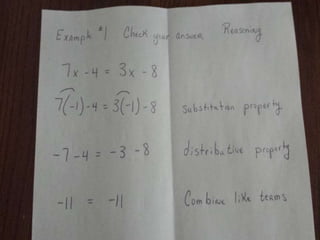 Example #1 Check your answer Reasoning
7x - 4 = 3x - 8
7(-1) - 4 = 3(-1) - 8 substitution property
-7 - 4 = -3 - 8 distributive property
-11 = -11 Combine like teams